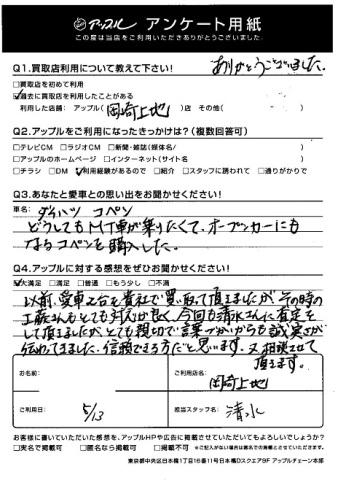 アップル アンケート用紙
この度は当店をご利用いただきありがとうございました。
Q1.買取店利用について教えて下さい!
ありがとうございました。
□買取店を初めて利用
☑過去に買取店を利用したことがある
利用した店舗: アップル( 岡崎上地 )店 その他( )
Q2.アップルをご利用になったきっかけは?(複数回答可)
□テレビCM □ラジオCM □新聞・雑誌(媒体名/ )
□アップルのホームページ □インターネット(サイト名 )
□チラシ □DM ☑利用経験があるので □紹介 □スタッフに誘われて □通りがかりで
Q3.あなたと愛車との思い出をお聞かせください!
車名: ダイハツ コペン
どうしてもMT車が乗りたくて、オープンカーにも
なるコペンを購入した。
Q4.アップルに対する感想をぜひお聞かせください!
☑大満足 □満足 □普通 □もう少し □不満
以前、愛車2台を貴社で買い取って頂きましたが、その時の
工藤さんもとても対応が良く、今回も清水さんに査定を
して頂きましたが、とても親切で言葉づかいからも誠実さが
伝わってきました。信頼できる方だと思います。又相談させて
頂きます。
お名前:
ご利用店名: 岡崎上地
ご利用日: 5/13
担当スタッフ名: 清水
お客様に書いていただいた感想を、アップルHPや広告に掲載させていただいてもよろしいでしょうか?
□実名で掲載可 □匿名なら掲載可 □掲載不可 (※ご記入がない場合は匿名での掲載可とさせていただきます。)
東京都中央区日本橋1丁目16番11号日本橋Dスクエア9F アップルチェーン本部